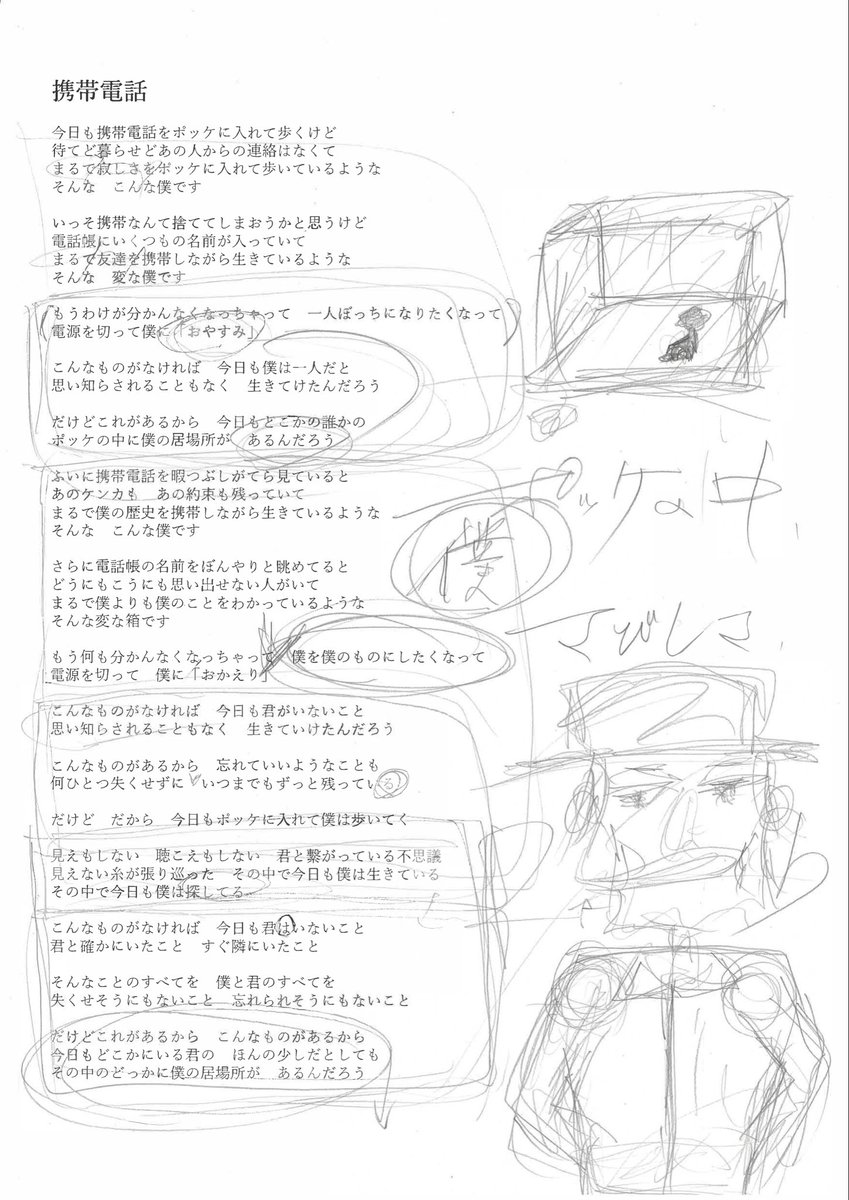 携帯電話
今日も携帯電話をポッケに入れて歩くけど
待てど暮らせどあの人からの連絡はなくて
まるで寂しさをポッケに入れて歩いているような
そんな　こんな僕です
いっそ携帯なんて捨ててしまおうかと思うけど
電話帳にいくつもの名前が入っていて
まるで友達を携帯しながら生きているような
そんな　変な僕です
もうわけが分かんなくなっちゃって　一人ぼっちになりたくなって
電源を切って僕に「おやすみ」
こんなものがなければ　今日も僕は一人だと
思い知らされることもなく　生きてけたんだろう
だけどこれがあるから　今日もどこかの誰かの
ポッケの中に僕の居場所が　あるんだろう
ふいに携帯電話を暇つぶしがてら見ていると
あのケンカも　あの約束も残っていて
まるで僕の歴史を携帯しながら生きているような
そんな　こんな僕です
さらに電話帳の名前をぼんやりと眺めてると
どうにもこうにも思い出せない人がいて
まるで僕よりも僕のことをわかっているような
そんな変な箱です
もう何も分かんなくなっちゃって　僕を僕のものにしたくなって
電源を切って　僕に「おかえり」
こんなものがなければ　今日も君がいないこと
思い知らされることもなく　生きていけたんだろう
こんなものがあるから　忘れていいようなことも
何ひとつ失くせずに　いつまでもずっと残っている
だけど　だから　今日もポッケに入れて僕は歩いてく
見えもしない　聴こえもしない　君と繋がっている不思議
見えない糸が張り巡った　その中で今日も僕は生きている
その中で今日も僕は探してる
こんなものがなければ　今日も君はいないこと
君と確かにいたこと　すぐ隣にいたこと
そんなことのすべてを　僕と君のすべてを
失くせそうにもないこと　忘れられそうにもないこと
だけどこれがあるから　こんなものがあるから
今日もどこかにいる君の　ほんの少しだとしても
その中のどっかに僕の居場所が　あるんだろう
ポッケの中
僕
さびしさ